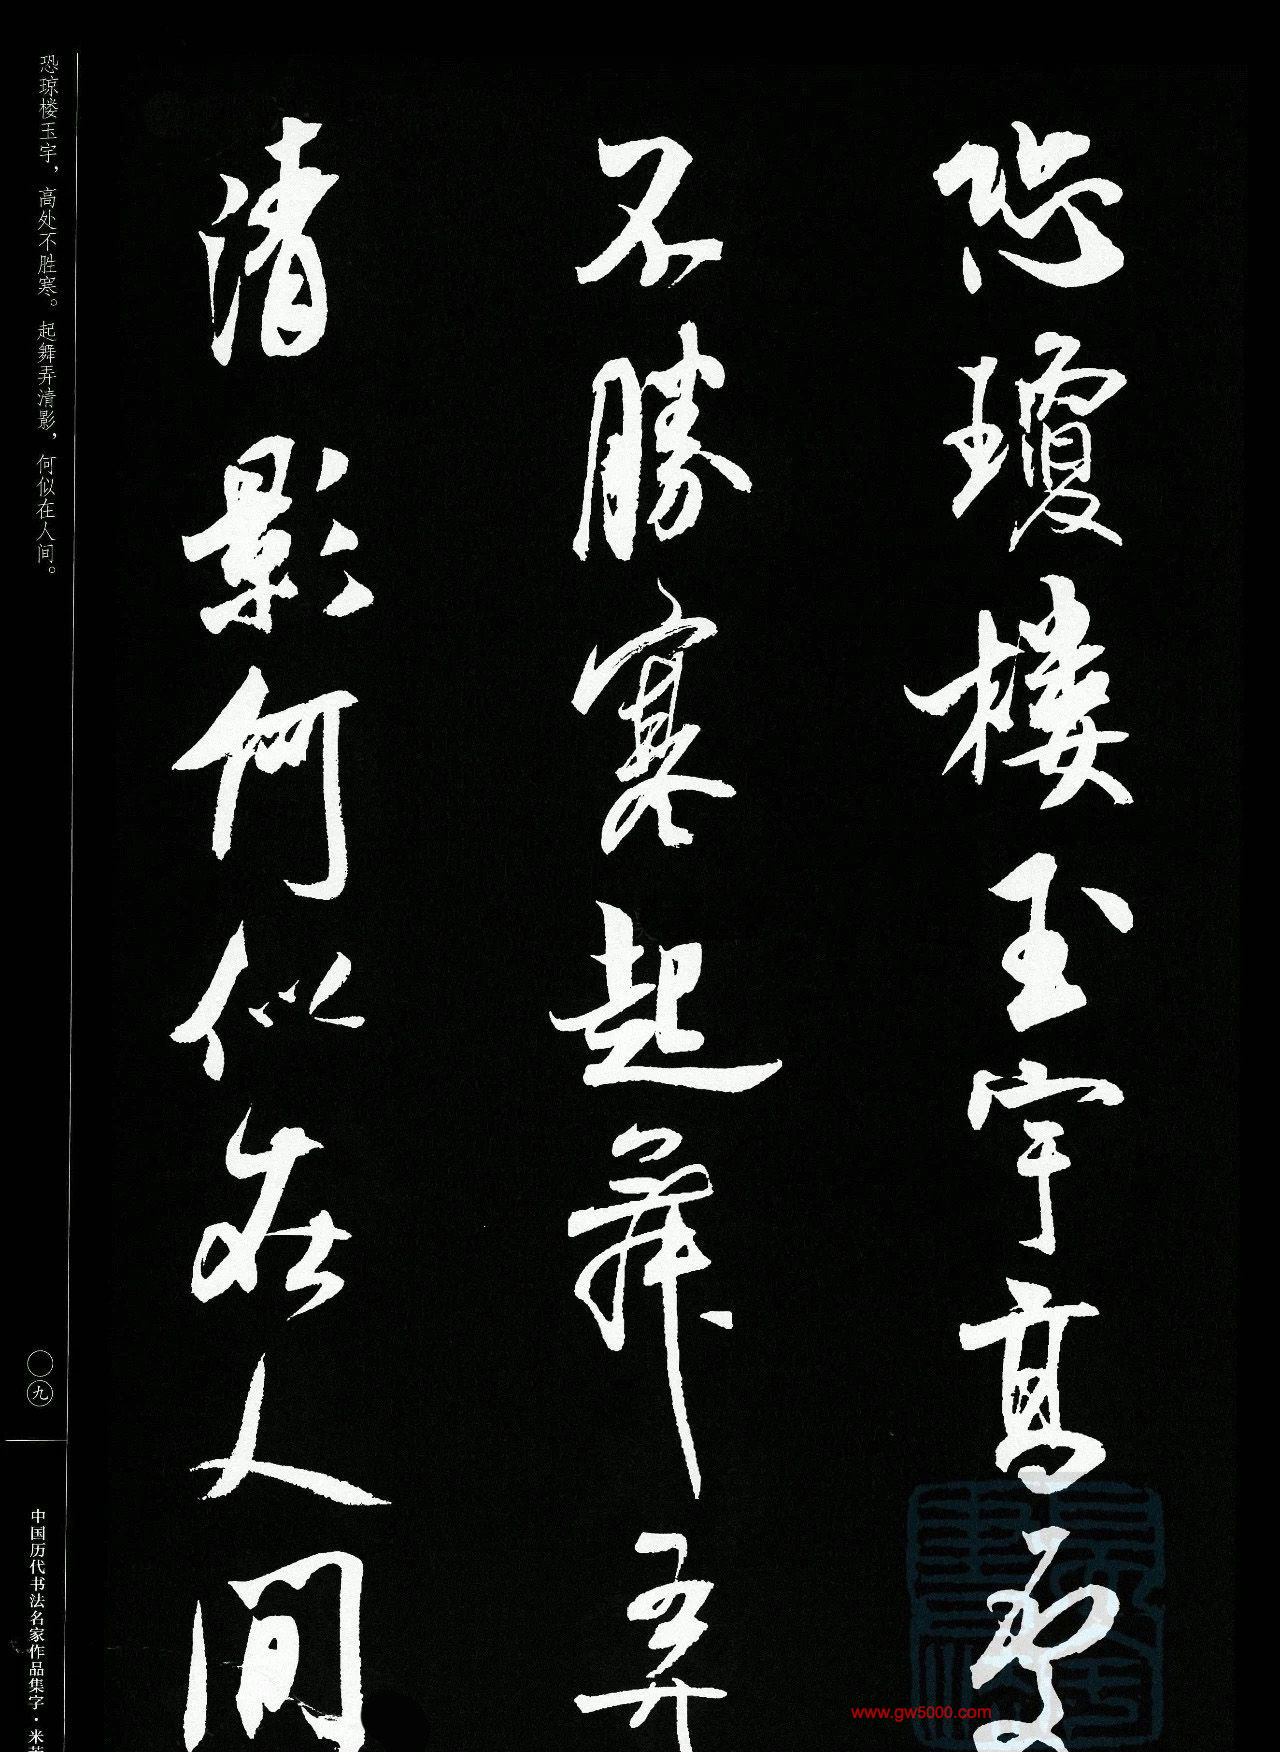 恐瓊樓玉宇高處
不勝寒起舞弄
清影何似在人間
恐琼楼玉宇，高处不胜寒。起舞弄清影，何似在人间。
〇九
中国历代书法名家作品集字·米
www.gw5000.com